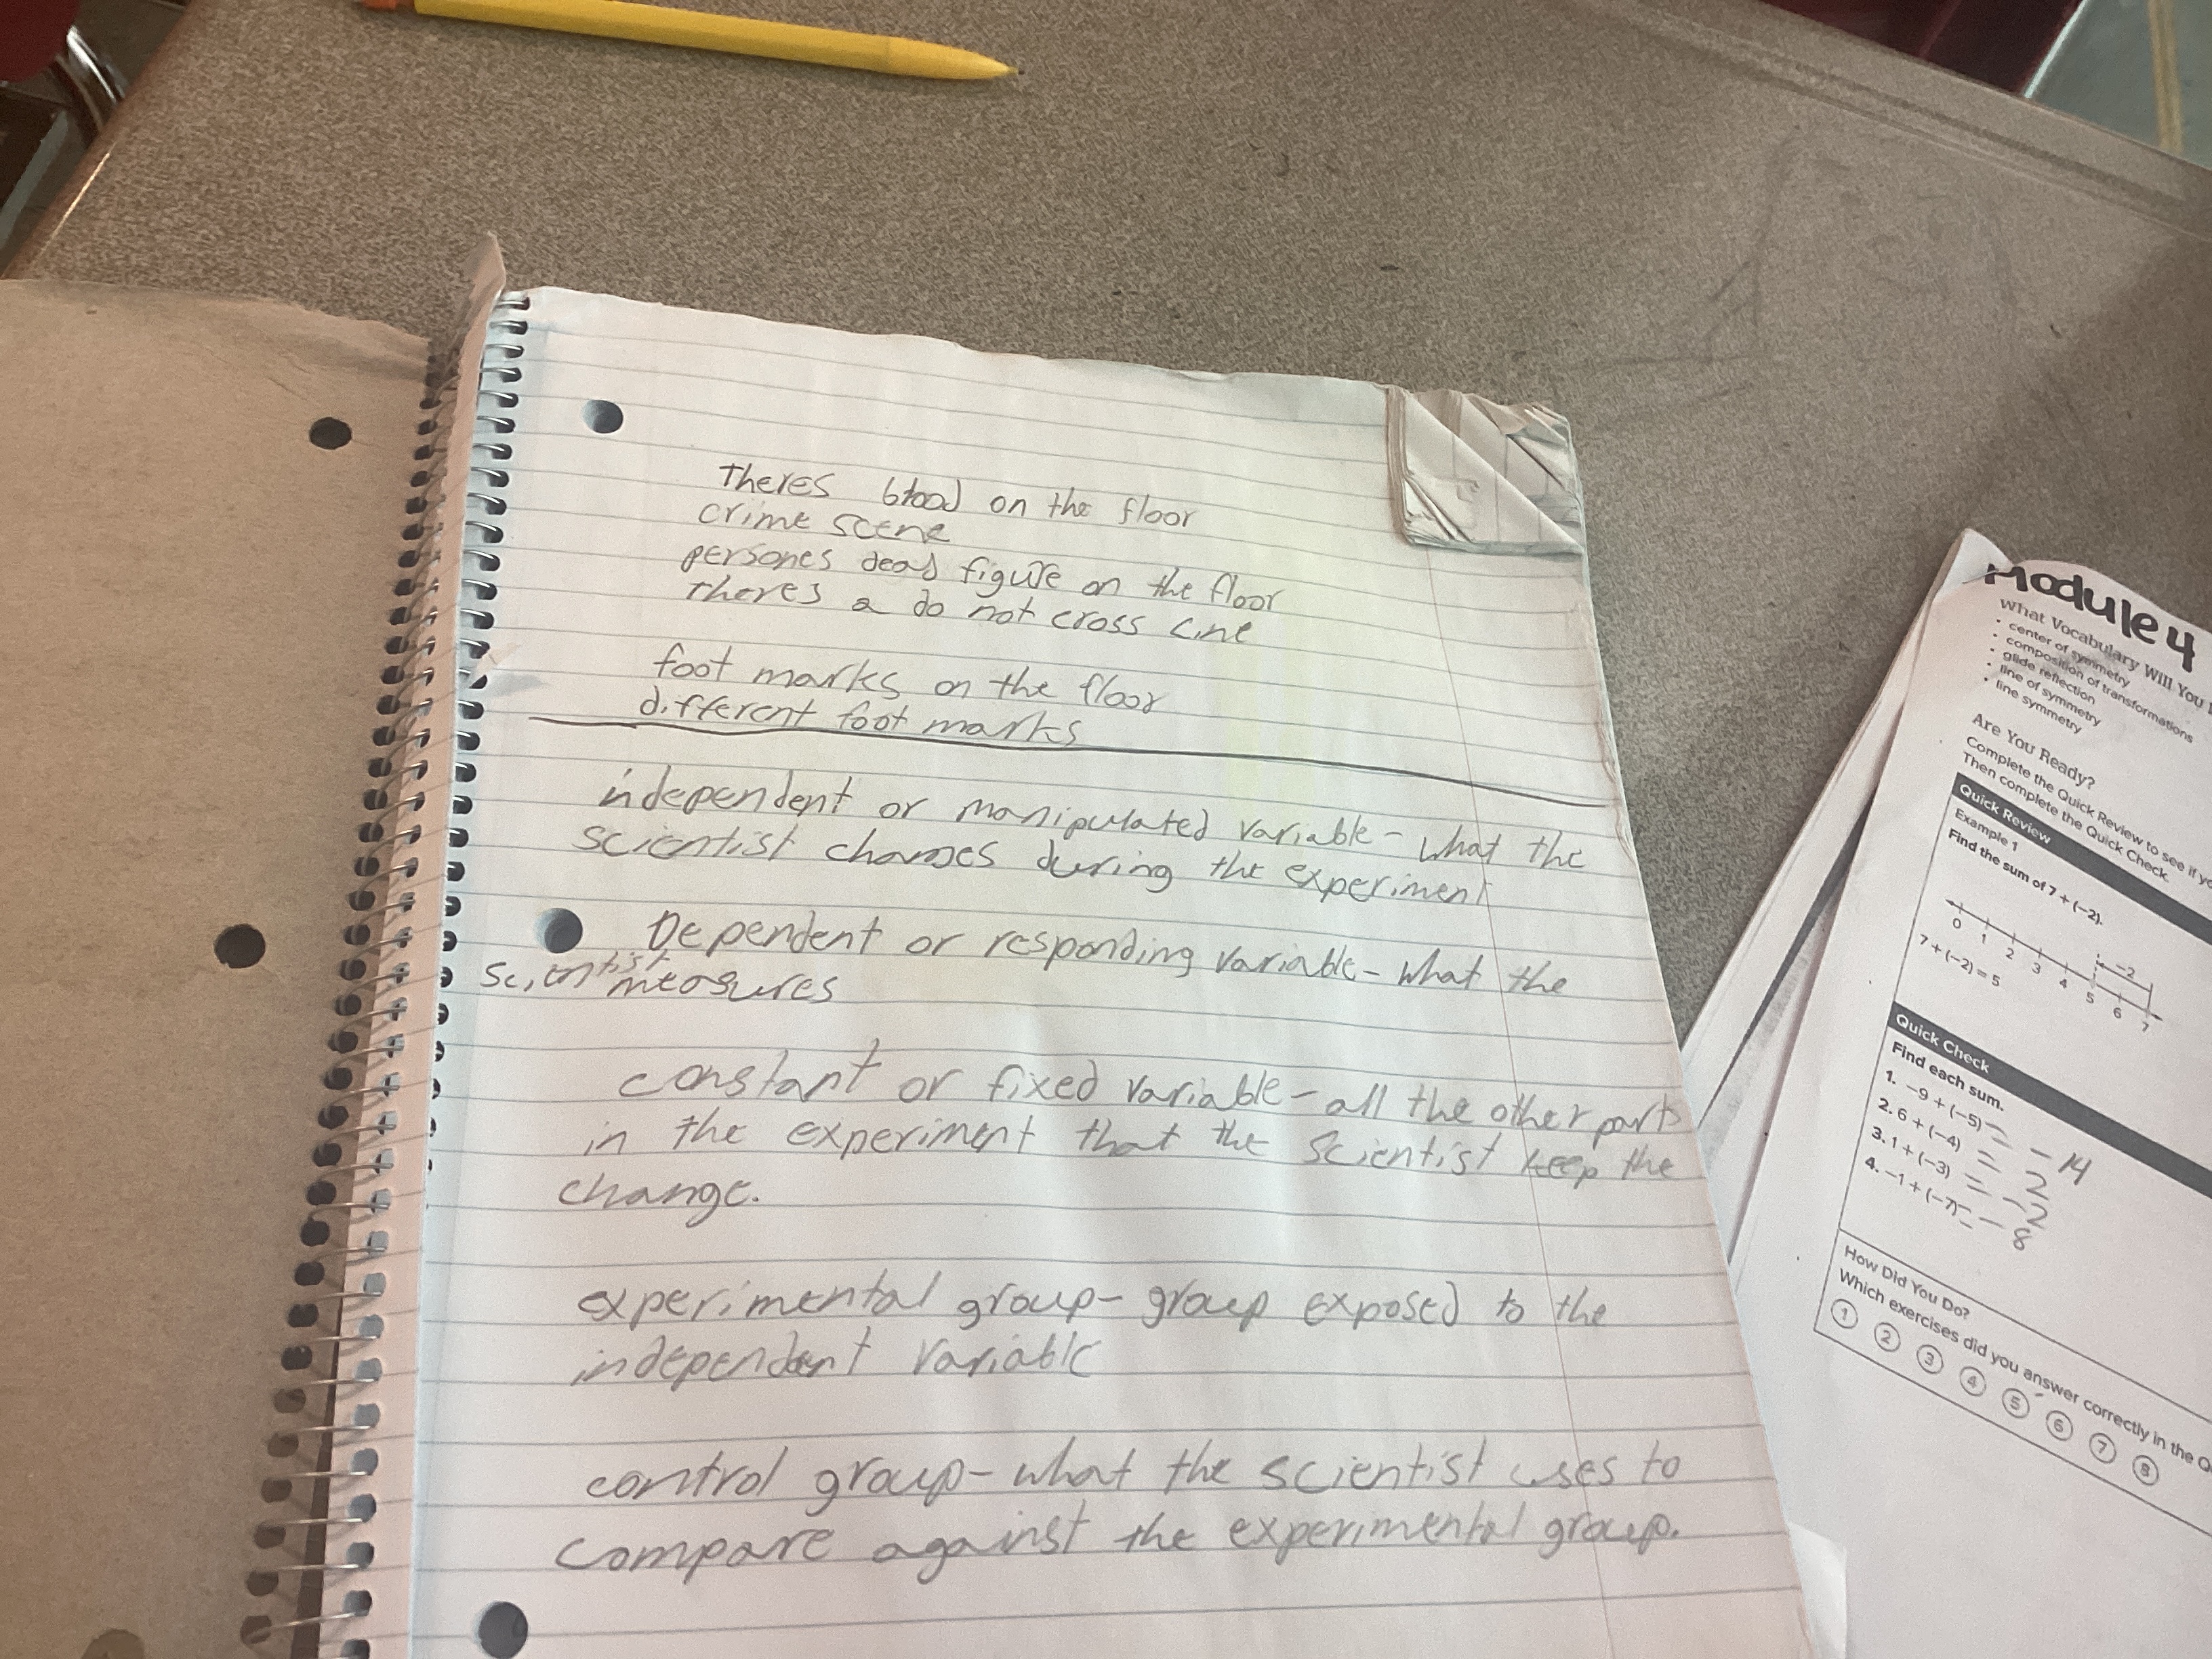 Theres blood on the floor
crime scene
persones dead figure on the floor
Theres a do not cross Line
foot marks on the floor
different foot marks
independent or manipulated variable - what the
scientist changes during the experiment
Dependent or responding variable - what the
scientist measures
constant or fixed variable - all the other parts
in the experiment that the scientist keep the
change.
experimental group - group exposed to the
independent variable
control group - what the scientist uses to
compare against the experimental group.
Module 4
What Vocabulary Will You
• center of symmetry
• composition of transformations
• glide reflection
• line of symmetry
• line symmetry
Are You Ready?
Complete the Quick Review to see if
Then complete the Quick Check.
Quick Review
Example 1
Find the sum of 7 + (−2).
−2
0 1 2 3 4 5 6 7
7 + (−2) = 5
Quick Check
Find each sum.
1. −9 + (−5) = -14
2. 6 + (−4) = 2
3. 1 + (−3) = -2
4. −1 + (−7) = -8
How Did You Do?
Which exercises did you answer correctly in the
1 2 3 4 5 6 7 8